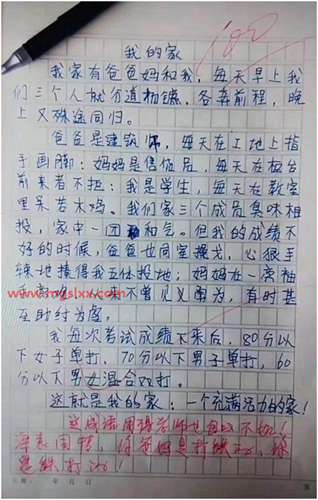 100
我的家
我家有爸爸妈和我，每天早上我
们三个人就分道扬镳，各奔前程，晚
上又殊途同归。
爸爸是建筑师，每天在工地上指
手画脚；妈妈是售货员，每天在柜台
前来者不拒；我是学生，每天在教室
里呆若木鸡。我们家三个成员臭味相
投，家中一团和气。但我的成绩不
好的时候，爸爸也同室操戈，心狠手
辣地揍得我五体投地；妈妈在一旁袖
手旁观，从来不曾见义勇为，有时甚
www.mgslxx.com
至助纣为虐。
我每次考试成绩下来后，80分以
下女子单打，70分以下男子单打，60
分以下男女混合双打。
这就是我的家：一个充满活力的家！